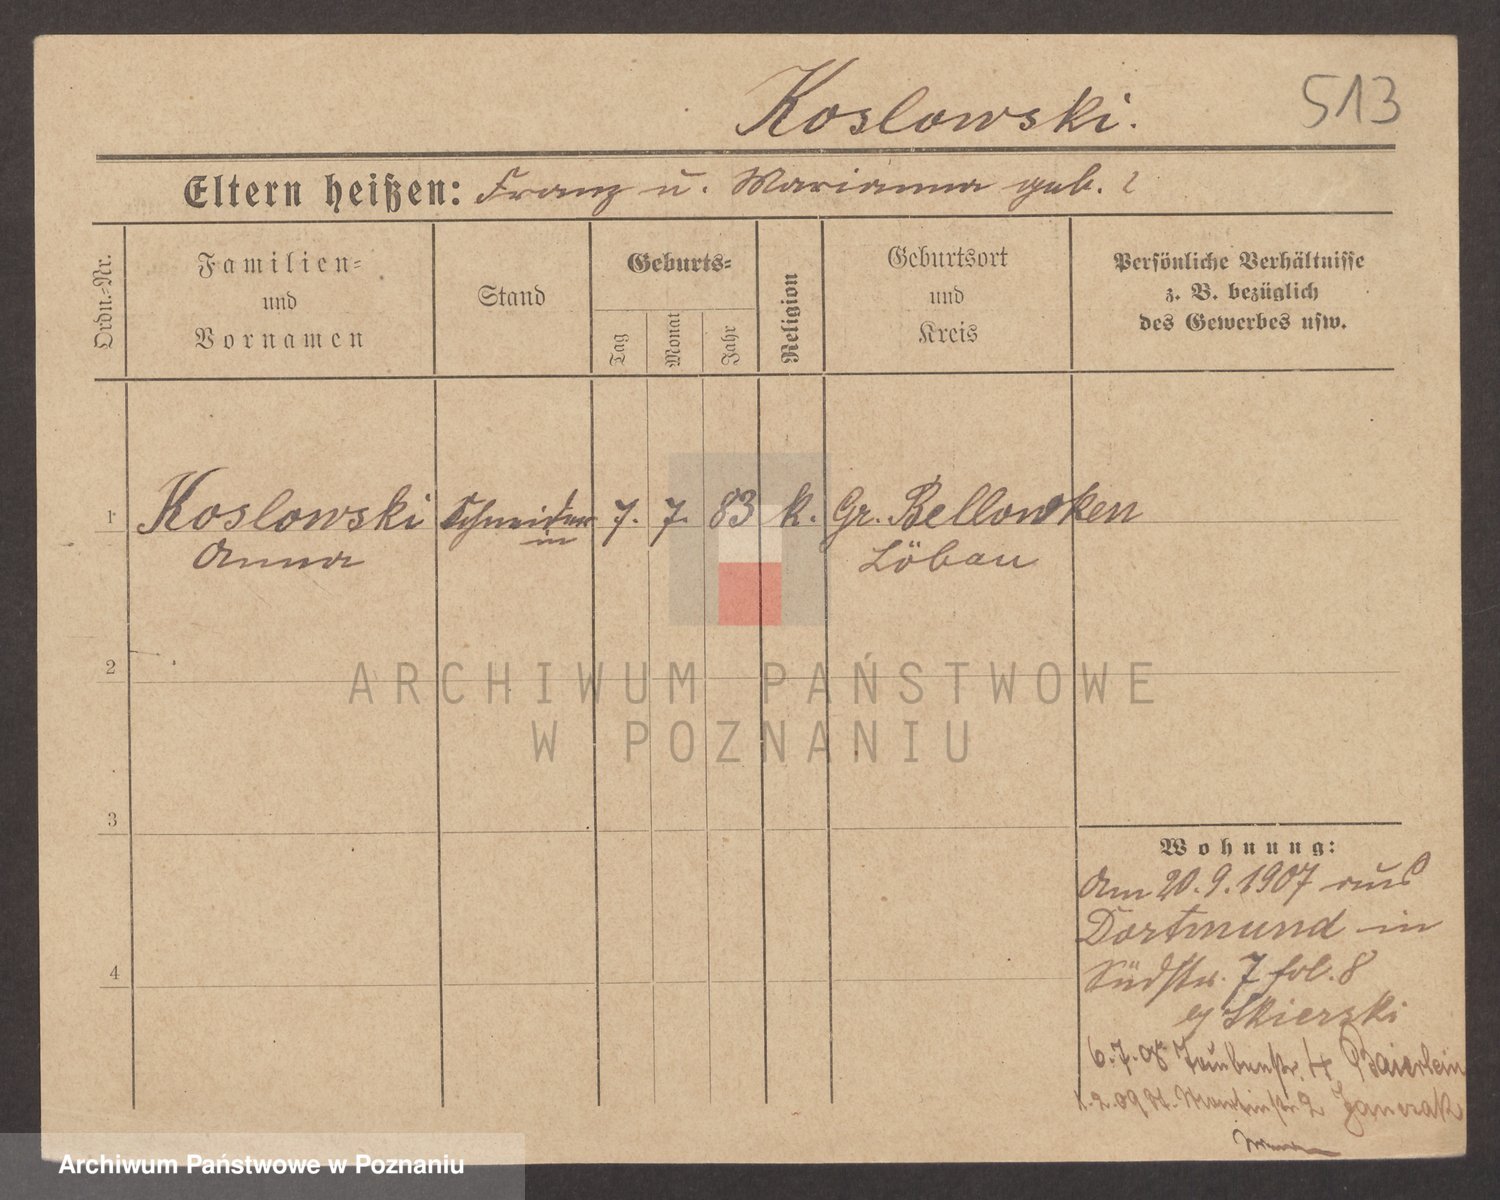 Koslowski.
513
Eltern heißen: Franz u. Marianna geb. ?
Ordn.=Nr.
Familien=
und
Vornamen
Stand
Geburts=
Tag
Monat
Jahr
Religion
Geburtsort
und
Kreis
Persönliche Verhältnisse
z. B. bezüglich
des Gewerbes usw.
1 Koslowski Schneider 7. 7. 83 k. Gr. Bellowken
in
Anna Löbau
2
ARCHIWUM PAŃSTWOWE
W POZNANIU
3
Wohnung:
Am 20.9.1907 aus
Dortmund in
Südstr. 7 fol. 8
Skierski
6.7.08 Taubenstr. 4 Baierlein
1.2.09 St. Martinstr. 2 Janczak
4
Archiwum Państwowe w Poznaniu